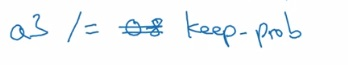 a3 /= keep-prob